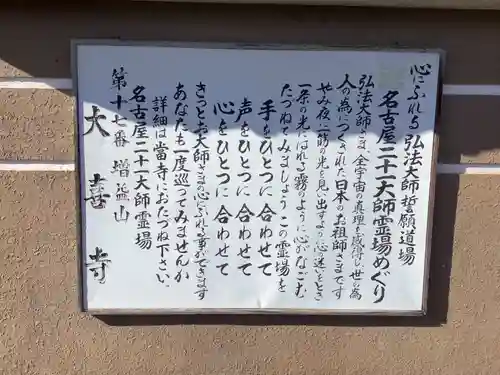 心にふれる 弘法大師 誓願道場
名古屋二十一大師霊場めぐり
弘法大師さま、全宇宙の真理を感得し世の為
人の為につくされた日本のお祖師さまです
やみ夜に一筋の光を見い出すよう心の迷いをとき
一条の光にはれる霧のように心がなごむ
たづねてみましょうこの霊場を
手をひとつに合わせて
声をひとつに合わせて
心をひとつに合わせて
きっとお大師さまの心にふれる事ができます
あなたも一度巡ってみませんか
詳細は当寺におたづね下さい。
名古屋二十一大師霊場
第十七番 増益山
大喜寺